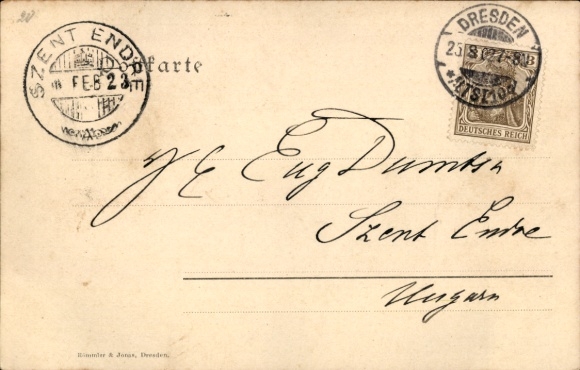 20
SZENT ENDRE
FEB 23
Postkarte
DRESDEN
DEUTSCHES REICH
Eug Dumtsa
Szent Endre
Ungarn
Römmler & Jonas, Dresden.